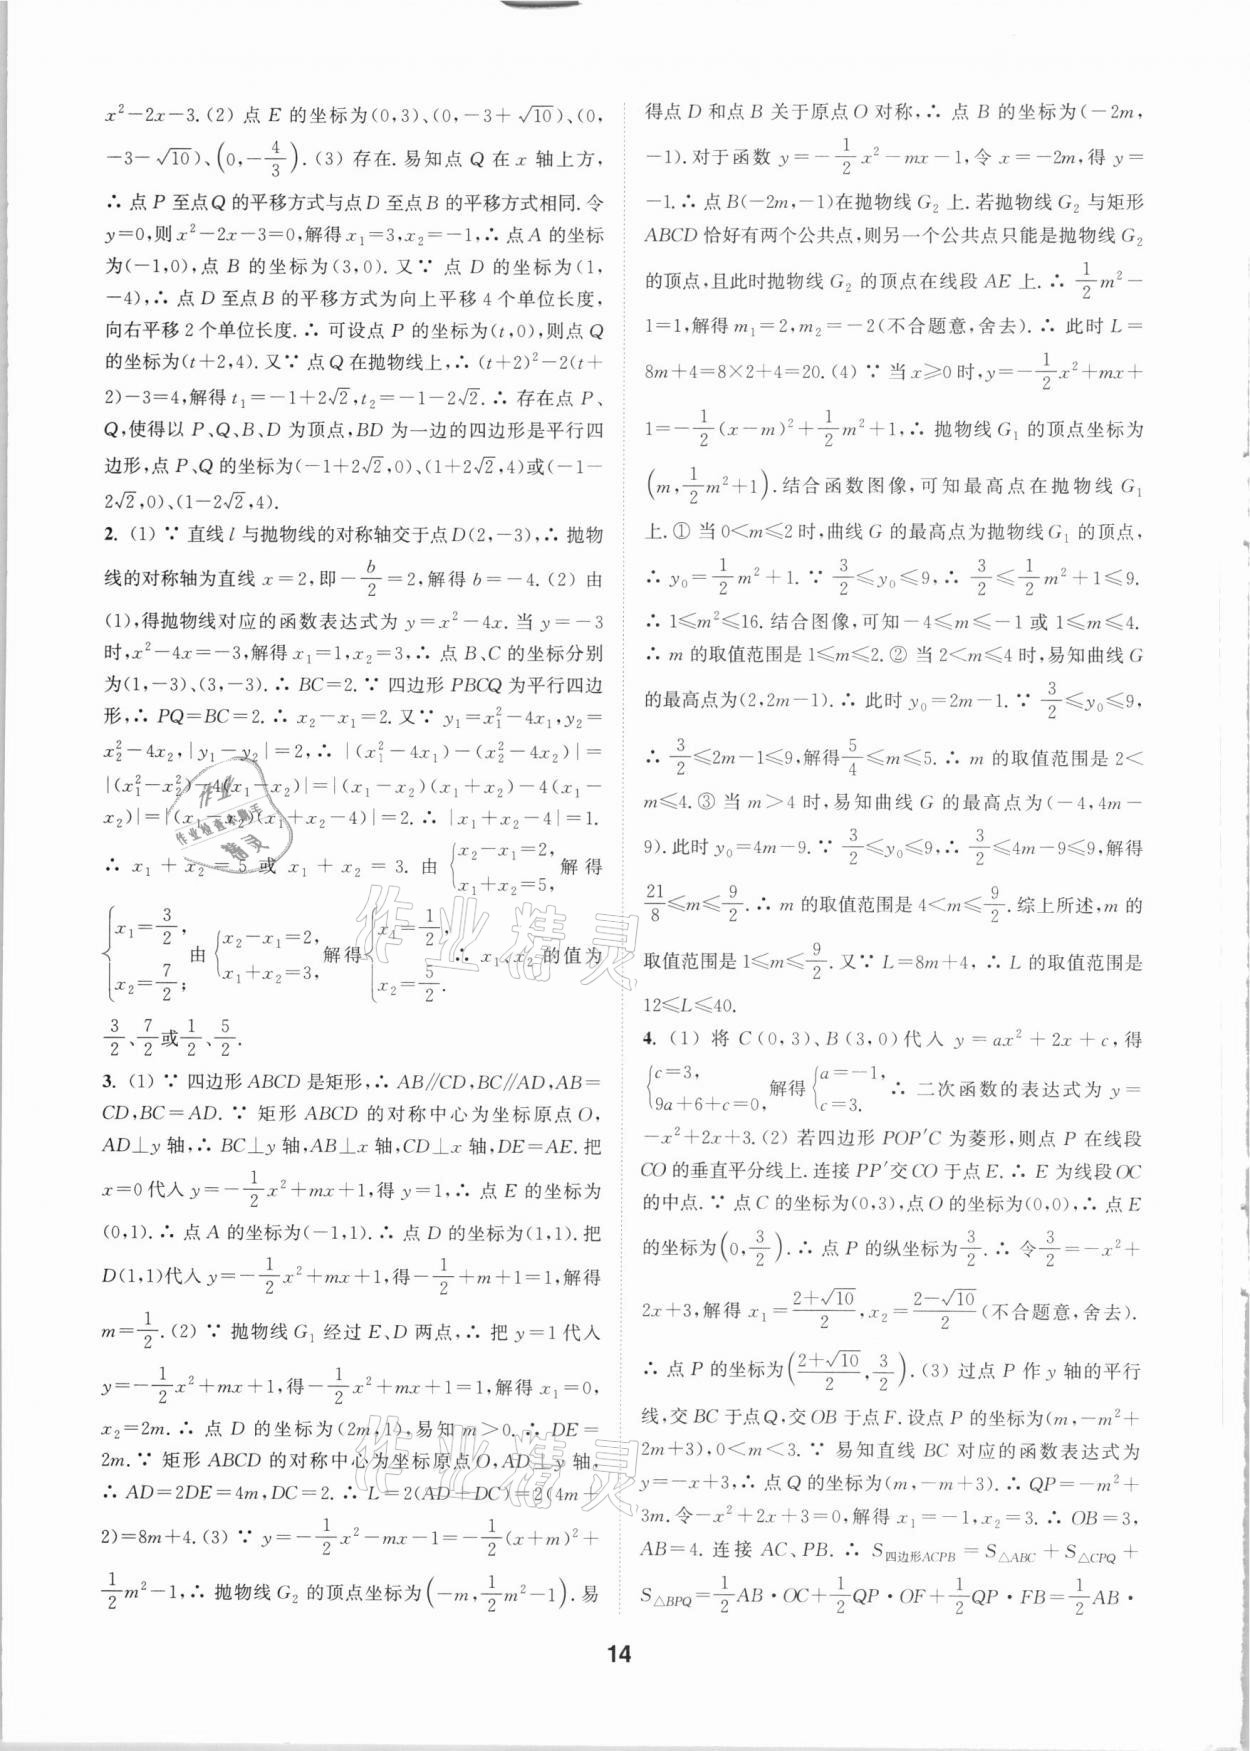 x²-2x-3.(2) 点 E 的坐标为(0,3)、(0,-3+√10)、(0,
-3-√10)、(0,-4/3).(3) 存在. 易知点 Q 在 x 轴上方,
∴ 点 P 至点Q 的平移方式与点 D 至点 B 的平移方式相同. 令
y=0,则 x²-2x-3=0,解得 x₁=3,x₂=-1,∴ 点 A 的坐标
为(-1,0),点 B 的坐标为(3,0). 又∵ 点 D 的坐标为(1,
-4),∴ 点 D 至点B 的平移方式为向上平移 4 个单位长度,
向右平移 2 个单位长度. ∴ 可设点 P 的坐标为(t,0),则点 Q
的坐标为(t+2,4). 又∵ 点 Q 在抛物线上,∴ (t+2)²-2(t+
2)-3=4,解得 t₁=-1+2√2,t₂=-1-2√2. ∴ 存在点 P、
Q,使得以 P、Q、B、D 为顶点,BD 为一边的四边形是平行四
边形,点 P、Q 的坐标为(-1+2√2,0)、(1+2√2,4)或(-1-
2√2,0)、(1-2√2,4).
2. (1) ∵ 直线 l 与抛物线的对称轴交于点 D(2,-3),∴ 抛物
线的对称轴为直线 x=2,即-b/2=2,解得 b=-4.(2) 由
(1),得抛物线对应的函数表达式为 y=x²-4x. 当 y=-3
时,x²-4x=-3,解得 x₁=1,x₂=3,∴ 点 B、C 的坐标分别
为(1,-3)、(3,-3). ∴ BC=2. ∵ 四边形 PBCQ 为平行四边
形,∴ PQ=BC=2. ∴ x₂-x₁=2. 又∵ y₁=x₁²-4x₁,y₂=
x₂²-4x₂,|y₁-y₂|=2,∴ |(x₁²-4x₁)-(x₂²-4x₂)|=
|(x₁²-x₂²)-4(x₁-x₂)|=|(x₁-x₂)(x₁+x₂)-4(x₁-
x₂)|=|(x₁-x₂)(x₁+x₂-4)|=2. ∴ |x₁+x₂-4|=1.
∴ x₁+x₂=5 或 x₁+x₂=3. 由 {x₂-x₁=2, x₁+x₂=5, 解得
{x₁=3/2, x₂=7/2; 由 {x₂-x₁=2, x₁+x₂=3, 解得 {x₁=1/2, x₂=5/2. ∴ x₁、x₂ 的值为
3/2、7/2或1/2、5/2.
3. (1) ∵ 四边形 ABCD 是矩形,∴ AB∥CD,BC∥AD,AB=
CD,BC=AD. ∵ 矩形 ABCD 的对称中心为坐标原点 O,
AD⊥y 轴,∴ BC⊥y 轴,AB⊥x 轴,CD⊥x 轴,DE=AE. 把
x=0 代入 y=-1/2x²+mx+1,得 y=1,∴ 点 E 的坐标为
(0,1). ∴ 点 A 的坐标为(-1,1). ∴ 点 D 的坐标为(1,1). 把
D(1,1)代入 y=-1/2x²+mx+1,得-1/2+m+1=1,解得
m=1/2.(2) ∵ 抛物线 G₁ 经过 E、D 两点,∴ 把 y=1 代入
y=-1/2x²+mx+1,得-1/2x²+mx+1=1,解得 x₁=0,
x₂=2m. ∴ 点 D 的坐标为(2m,1),易知 m>0. ∴ DE=
2m. ∵ 矩形 ABCD 的对称中心为坐标原点 O,AD⊥y 轴,
∴ AD=2DE=4m,DC=2. ∴ L=2(AD+DC)=2(4m+
2)=8m+4.(3) ∵ y=-1/2x²-mx-1=-1/2(x+m)²+
1/2m²-1,∴ 抛物线 G₂ 的顶点坐标为(-m,1/2m²-1). 易
得点 D 和点 B 关于原点 O 对称,∴ 点 B 的坐标为(-2m,
-1). 对于函数 y=-1/2x²-mx-1,令 x=-2m,得 y=
-1. ∴ 点 B(-2m,-1)在抛物线 G₂ 上. 若抛物线 G₂ 与矩形
ABCD 恰好有两个公共点,则另一个公共点只能是抛物线 G₂
的顶点,且此时抛物线 G₂ 的顶点在线段 AE 上. ∴ 1/2m²-
1=1,解得 m₁=2,m₂=-2(不合题意,舍去). ∴ 此时 L=
8m+4=8×2+4=20.(4) ∵ 当 x≥0 时,y=-1/2x²+mx+
1=-1/2(x-m)²+1/2m²+1,∴ 抛物线 G₁ 的顶点坐标为
(m,1/2m²+1). 结合函数图像,可知最高点在抛物线 G₁
上. ① 当 0<m≤2 时,曲线 G 的最高点为抛物线 G₁ 的顶点,
∴ y₀=1/2m²+1. ∵ 3/2≤y₀≤9,∴ 3/2≤1/2m²+1≤9.
∴ 1≤m²≤16. 结合图像,可知-4≤m≤-1 或 1≤m≤4.
∴ m 的取值范围是 1≤m≤2. ② 当 2<m≤4 时,易知曲线 G
的最高点为(2,2m-1). ∴ 此时 y₀=2m-1. ∵ 3/2≤y₀≤9,
∴ 3/2≤2m-1≤9,解得5/4≤m≤5. ∴ m 的取值范围是 2<
m≤4. ③ 当 m>4 时,易知曲线 G 的最高点为(-4,4m-
9). 此时 y₀=4m-9. ∵ 3/2≤y₀≤9,∴ 3/2≤4m-9≤9,解得
21/8≤m≤9/2. ∴ m 的取值范围是 4<m≤9/2. 综上所述,m 的
取值范围是 1≤m≤9/2. 又∵ L=8m+4,∴ L 的取值范围是
12≤L≤40.
4. (1) 将 C(0,3)、B(3,0)代入 y=ax²+2x+c,得
{c=3, 9a+6+c=0, 解得 {a=-1, c=3. ∴ 二次函数的表达式为 y=
-x²+2x+3.(2) 若四边形 POP′C 为菱形,则点 P 在线段
CO 的垂直平分线上. 连接 PP′交 CO 于点 E. ∴ E 为线段 OC
的中点. ∵ 点 C 的坐标为(0,3),点 O 的坐标为(0,0),∴ 点 E
的坐标为(0,3/2). ∴ 点 P 的纵坐标为3/2. ∴ 令3/2=-x²+
2x+3,解得 x₁=(2+√10)/2,x₂=(2-√10)/2(不合题意,舍去).
∴ 点 P 的坐标为((2+√10)/2,3/2).(3) 过点 P 作 y 轴的平行
线,交 BC 于点 Q,交 OB 于点 F. 设点 P 的坐标为(m,-m²+
2m+3),0<m<3. ∵ 易知直线 BC 对应的函数表达式为
y=-x+3,∴ 点 Q 的坐标为(m,-m+3). ∴ QP=-m²+
3m. 令-x²+2x+3=0,解得 x₁=-1,x₂=3. ∴ OB=3,
AB=4. 连接 AC、PB. ∴ S四边形ACPB=S△ABC+S△CPQ+
S△BPQ=1/2AB·OC+1/2QP·OF+1/2QP·FB=1/2AB·
14
作业
作业检查小帮手
精灵
作业精灵
作业精灵